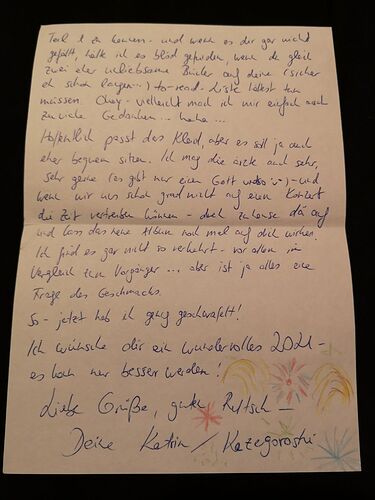 Teil 1 zu kennen - und wenn es dir gar nicht
gefällt, hätte ich es blöd gefunden, wenn du gleich
zwei eher unliebsame Bücher auf deine (sicher
eh schon langen...) to-read-Liste hättest tun
müssen. Okay - vielleicht mach ich mir einfach auch
zu viele Gedanken... haha...
Hoffentlich passt das Kleid, aber es soll ja auch
eher bequem sitzen. Ich mag die ärzte auch sehr,
sehr gerne (es gibt nur einen Gott :-)) - und
wenn wir uns schon grad nicht auf einem Konzert
die Zeit vertreiben können - doch zuhause dä auf
und lass das neue Album noch mal auf dich wirken.
Ich find es gar nicht so verkehrt - vor allem im
Vergleich zum Vorgänger... aber ist ja alles eine
Frage des Geschmacks.
So - jetzt hab ich genug geschwafelt!
Ich wünsche dir ein wundervolles 2021 -
es kann nur besser werden!
Liebe Grüße, guten Rutsch -
Deine Katrin / Kazegoroshi